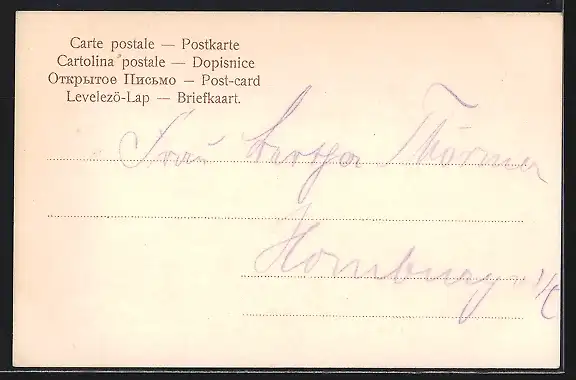 Carte postale — Postkarte
Cartolina postale — Dopisnice
Открытое Письмо — Post-card
Levelező-Lap — Briefkaart.
Frau Bertha Thörmer
Homburg